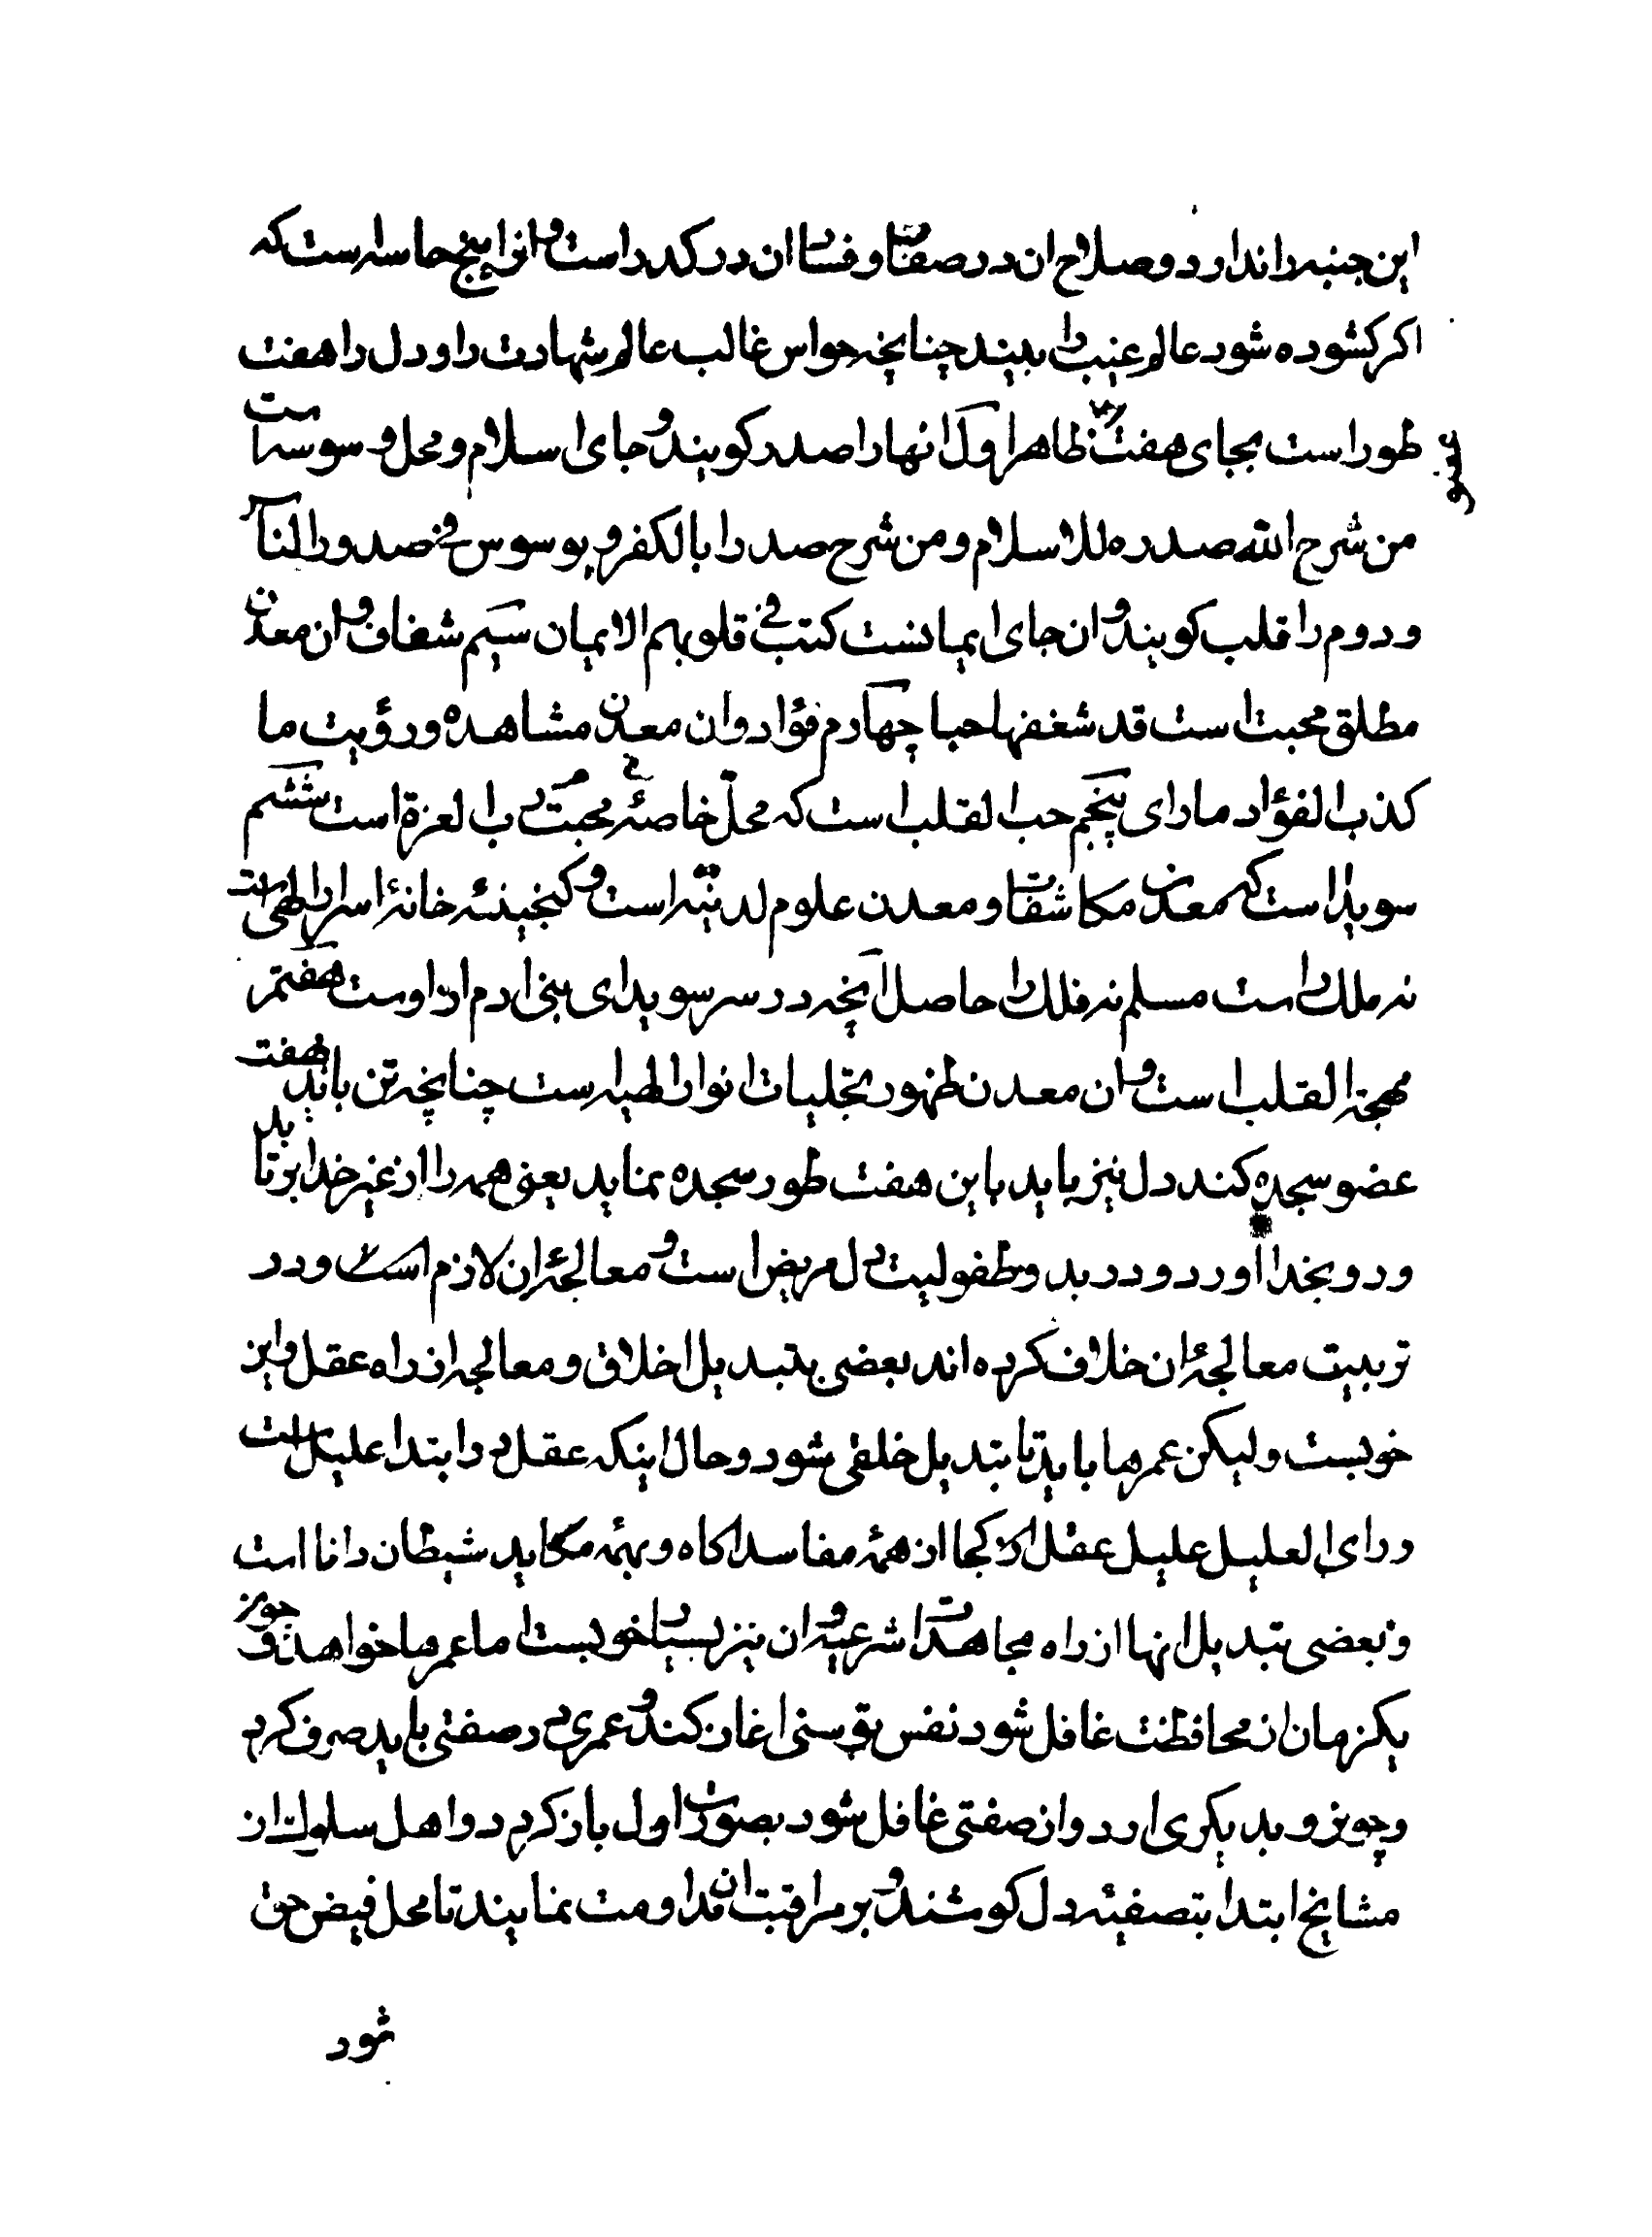 این جنبه را ندارد و صلاح ان در صفات و فساد ان در کدر است و انرا پنج حاسه است که
اکر کشوده شود عالم غیب را ببیند چنانچه حواس غالب عالم شهادت را و دل را هفت
طور است بجای هفت ظاهر اول انها را صدر کویند و جای اسلام و محل وسوسه است
عضو
من شرح الله صدره للاسلام و من شرح صدرا بالکفر و یوسوس فی صدور الناس
و دوم را قلب کویند و ان جای ایمانست کتب فی قلوبهم الایمان سیم شغاف و ان معدن
مطلق محبت است قد شغفها حبا چهارم فؤاد و ان معدن مشاهده و رؤیت ما
کذب الفؤاد ما رای پنجم حب القلب است که محل خاصهٔ محبت رب العزة است ششم
سویدا است که معدن مکاشفات و معدن علوم لدنیه است و کنجینه خانهٔ اسرار الهی است
نه ملک را است مسلم نه فلک را حاصل انچه در سر سویدای بنی ادم از اوست هفتم
مهجة القلب است و ان معدن ظهور تجلیات انوار الهیه است چنانچه تن باید بهفت
عضو سجده کند دل نیز باید باین هفت طور سجده نماید یعنی همه را از غیر خدا برتابد
و رو بخدا اورد و در بدو طفولیت دل مریض است و معالجهٔ ان لازم است و در
تربیت معالجهٔ ان خلاف کرده اند بعضی بتبدیل اخلاق و معالجه از راه عقل و این
خوبست ولیکن عمرها باید تا تبدیل خلقی شود و حال اینکه عقل در ابتدا علیل است
و رای العلیل علیل عقل از کجا از همهٔ مفاسد اکاه و بهمهٔ مکاید شیطان دانا است
و بعضی تبدیل انها از راه مجاهدات شرعیه و ان نیز بسیار خوبست اما عمرها خواهد و چون
یکزمان از محافظت غافل شود نفس توسنی اغاز کند و عمری در صفتی باید صرف کرد
و چون رو بدیکری ارد و از صفتی غافل شود بصورت اول باز کردد و اهل سلوک از
مشایخ ابتدا بتصفیهٔ دل کوشند و بر مراقبت ان مداومت نمایند تا محل فیض حق
شود